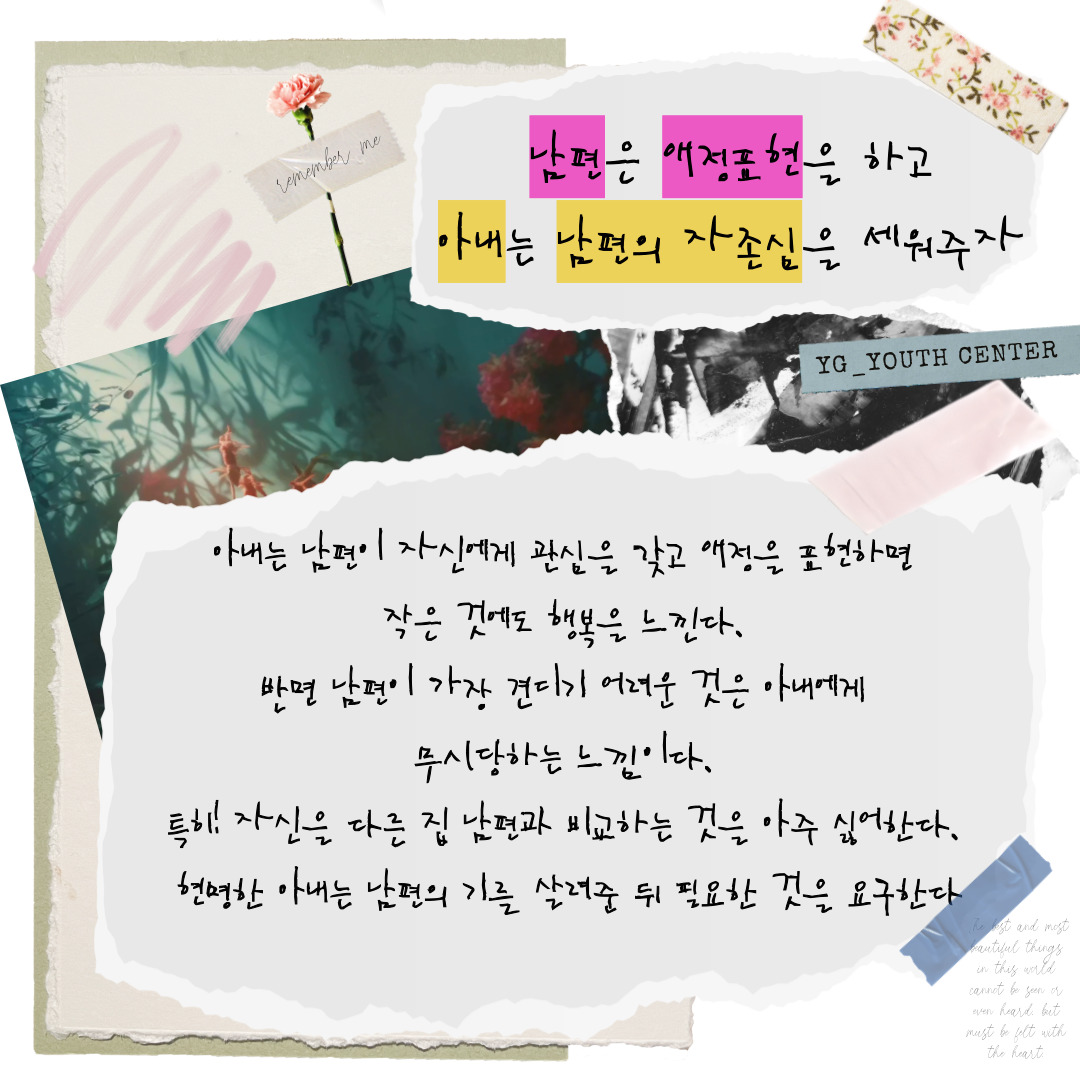 remember me
남편은 애정표현을 하고
아내는 남편의 자존심을 세워주자
YG_YOUTH CENTER
아내는 남편이 자신에게 관심을 갖고 애정을 표현하면
작은 것에도 행복을 느낀다.
반면 남편이 가장 견디기 어려운 것은 아내에게
무시당하는 느낌이다.
특히! 자신을 다른 집 남편과 비교하는 것을 아주 싫어한다.
현명한 아내는 남편의 기를 살려준 뒤 필요한 것을 요구한다
he best and most
beautiful things
in this world
cannot be seen or
even heard, but
must be felt with
the heart.